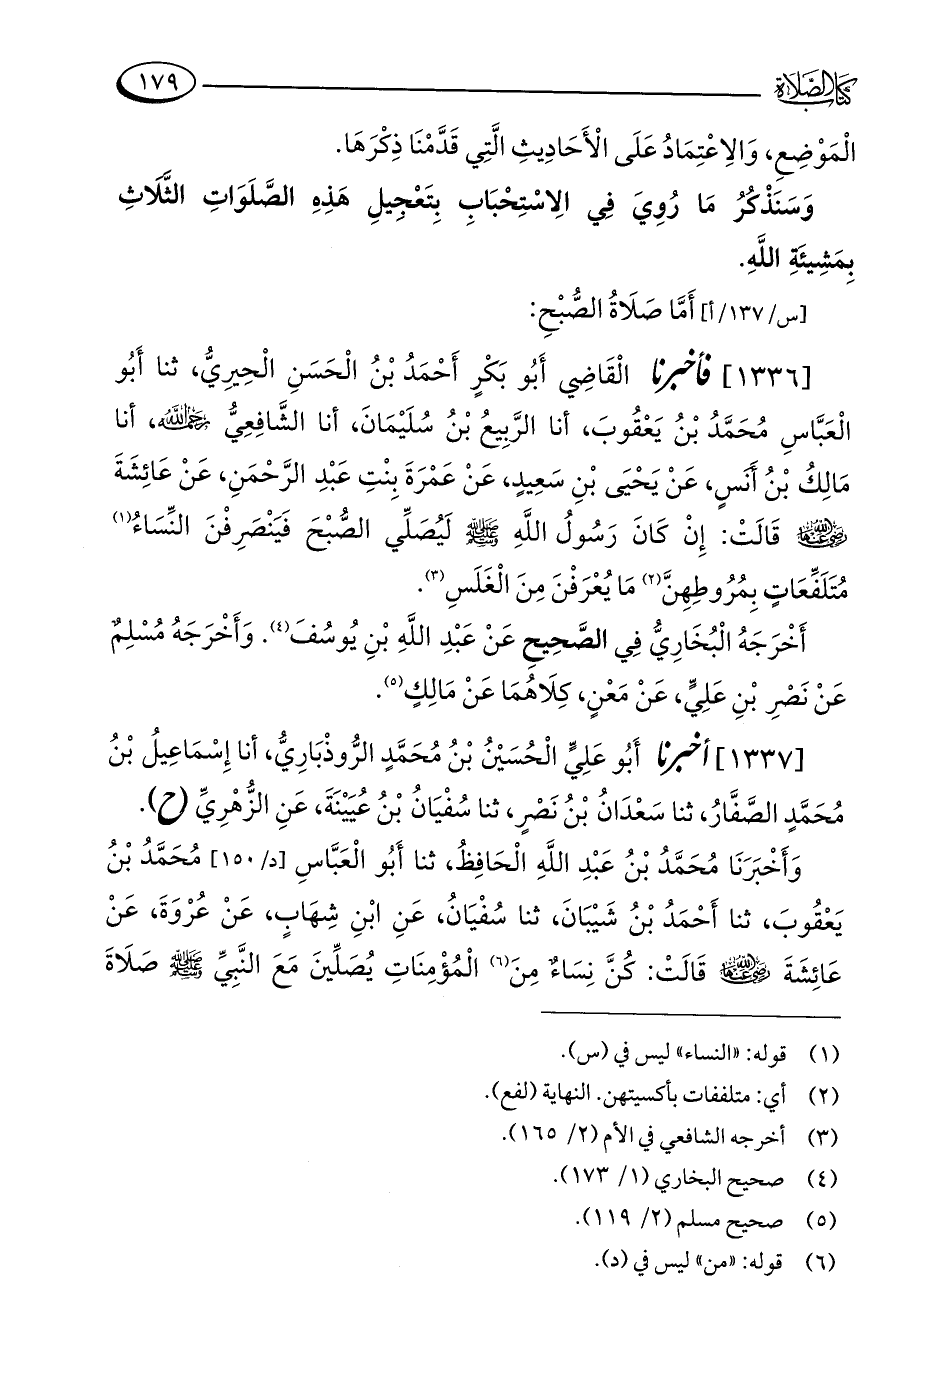 كتاب الصلاة ١٧٩
الْمَوْضِعِ، وَالِاعْتِمَادُ عَلَى الْأَحَادِيثِ الَّتِي قَدَّمْنَا ذِكْرَهَا.
وَسَنَذْكُرُ مَا رُوِيَ فِي الِاسْتِحْبَابِ بِتَعْجِيلِ هَذِهِ الصَّلَوَاتِ الثَّلَاثِ
بِمَشِيئَةِ اللَّهِ.
[س/ ١٣٧/ أ] أَمَّا صَلَاةُ الصُّبْحِ:
[١٣٣٦] فأخبرنا الْقَاضِي أَبُو بَكْرٍ أَحْمَدُ بْنُ الْحَسَنِ الْحِيرِيُّ، ثنا أَبُو
الْعَبَّاسِ مُحَمَّدُ بْنُ يَعْقُوبَ، أنا الرَّبِيعُ بْنُ سُلَيْمَانَ، أنا الشَّافِعِيُّ رحمه الله، أنا
مَالِكُ بْنُ أَنَسٍ، عَنْ يَحْيَى بْنِ سَعِيدٍ، عَنْ عَمْرَةَ بِنْتِ عَبْدِ الرَّحْمَنِ، عَنْ عَائِشَةَ
رضي الله عنها قَالَتْ: إِنْ كَانَ رَسُولُ اللَّهِ ﷺ لَيُصَلِّي الصُّبْحَ فَيَنْصَرِفْنَ النِّسَاءُ(١)
مُتَلَفِّعَاتٍ بِمُرُوطِهِنَّ(٢) مَا يُعْرَفْنَ مِنَ الْغَلَسِ(٣).
أَخْرَجَهُ الْبُخَارِيُّ فِي الصَّحِيحِ عَنْ عَبْدِ اللَّهِ بْنِ يُوسُفَ(٤). وَأَخْرَجَهُ مُسْلِمٌ
عَنْ نَصْرِ بْنِ عَلِيٍّ، عَنْ مَعْنٍ، كِلَاهُمَا عَنْ مَالِكٍ(٥).
[١٣٣٧] أخبرنا أَبُو عَلِيٍّ الْحُسَيْنُ بْنُ مُحَمَّدٍ الرُّوذْبَارِيُّ، أنا إِسْمَاعِيلُ بْنُ
مُحَمَّدٍ الصَّفَّارُ، ثنا سَعْدَانُ بْنُ نَصْرٍ، ثنا سُفْيَانُ بْنُ عُيَيْنَةَ، عَنِ الزُّهْرِيِّ (ح).
وَأَخْبَرَنَا مُحَمَّدُ بْنُ عَبْدِ اللَّهِ الْحَافِظُ، ثنا أَبُو الْعَبَّاسِ [د/ ١٥٠] مُحَمَّدُ بْنُ
يَعْقُوبَ، ثنا أَحْمَدُ بْنُ شَيْبَانَ، ثنا سُفْيَانُ، عَنِ ابْنِ شِهَابٍ، عَنْ عُرْوَةَ، عَنْ
عَائِشَةَ رضي الله عنها قَالَتْ: كُنَّ نِسَاءٌ مِنَ(٦) الْمُؤْمِنَاتِ يُصَلِّينَ مَعَ النَّبِيِّ ﷺ صَلَاةَ
(١) قوله: «النساء» ليس في (س).
(٢) أي: متلففات بأكسيتهن. النهاية (لفع).
(٣) أخرجه الشافعي في الأم (٢/ ١٦٥).
(٤) صحيح البخاري (١/ ١٧٣).
(٥) صحيح مسلم (٢/ ١١٩).
(٦) قوله: «من» ليس في (د).